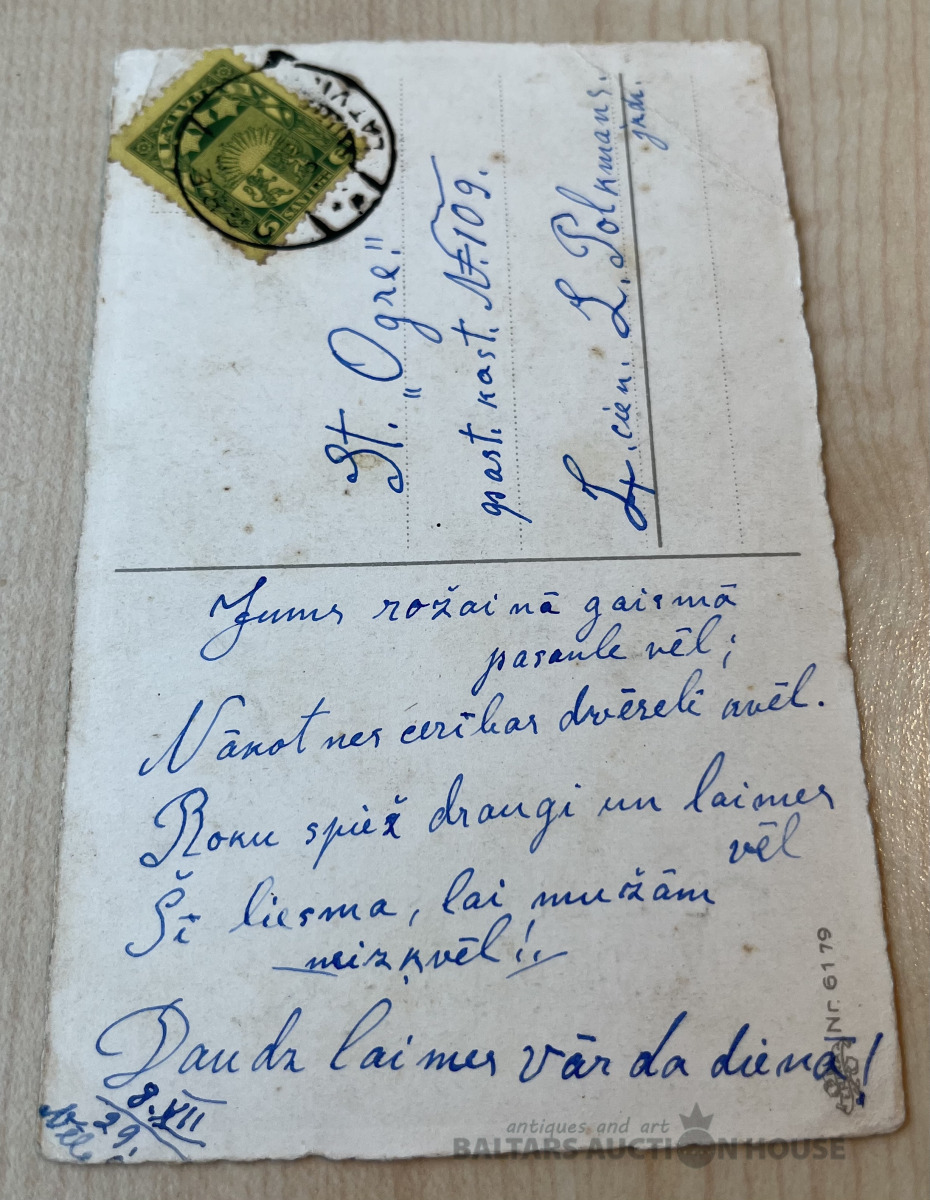 LATVIJA
St. „Ogre."
past. kast. № 109.
L. cien. L. Polkmans.
jun.
Jums rožainā gaismā
pasaule vēl;
Nākotnes cerības dvēselē kvēl.
Roku spiež draugi un laimes
vēl
Šī liesma, lai mužām
neizķvēl!
Daudz laimes vārda dienā!
8.XII
29.
Nr. 6179
antiques and art
BALTARS AUCTION HOUSE